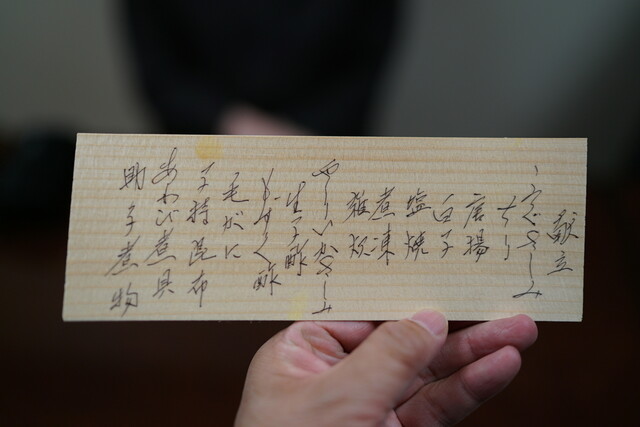 献立
ふぐさしみ
ちり
唐揚
白子
塩焼
煮凍
雑炊
やりいかさしみ
生子酢
もずく酢
毛がに
子持昆布
あわび煮貝
助子煮物